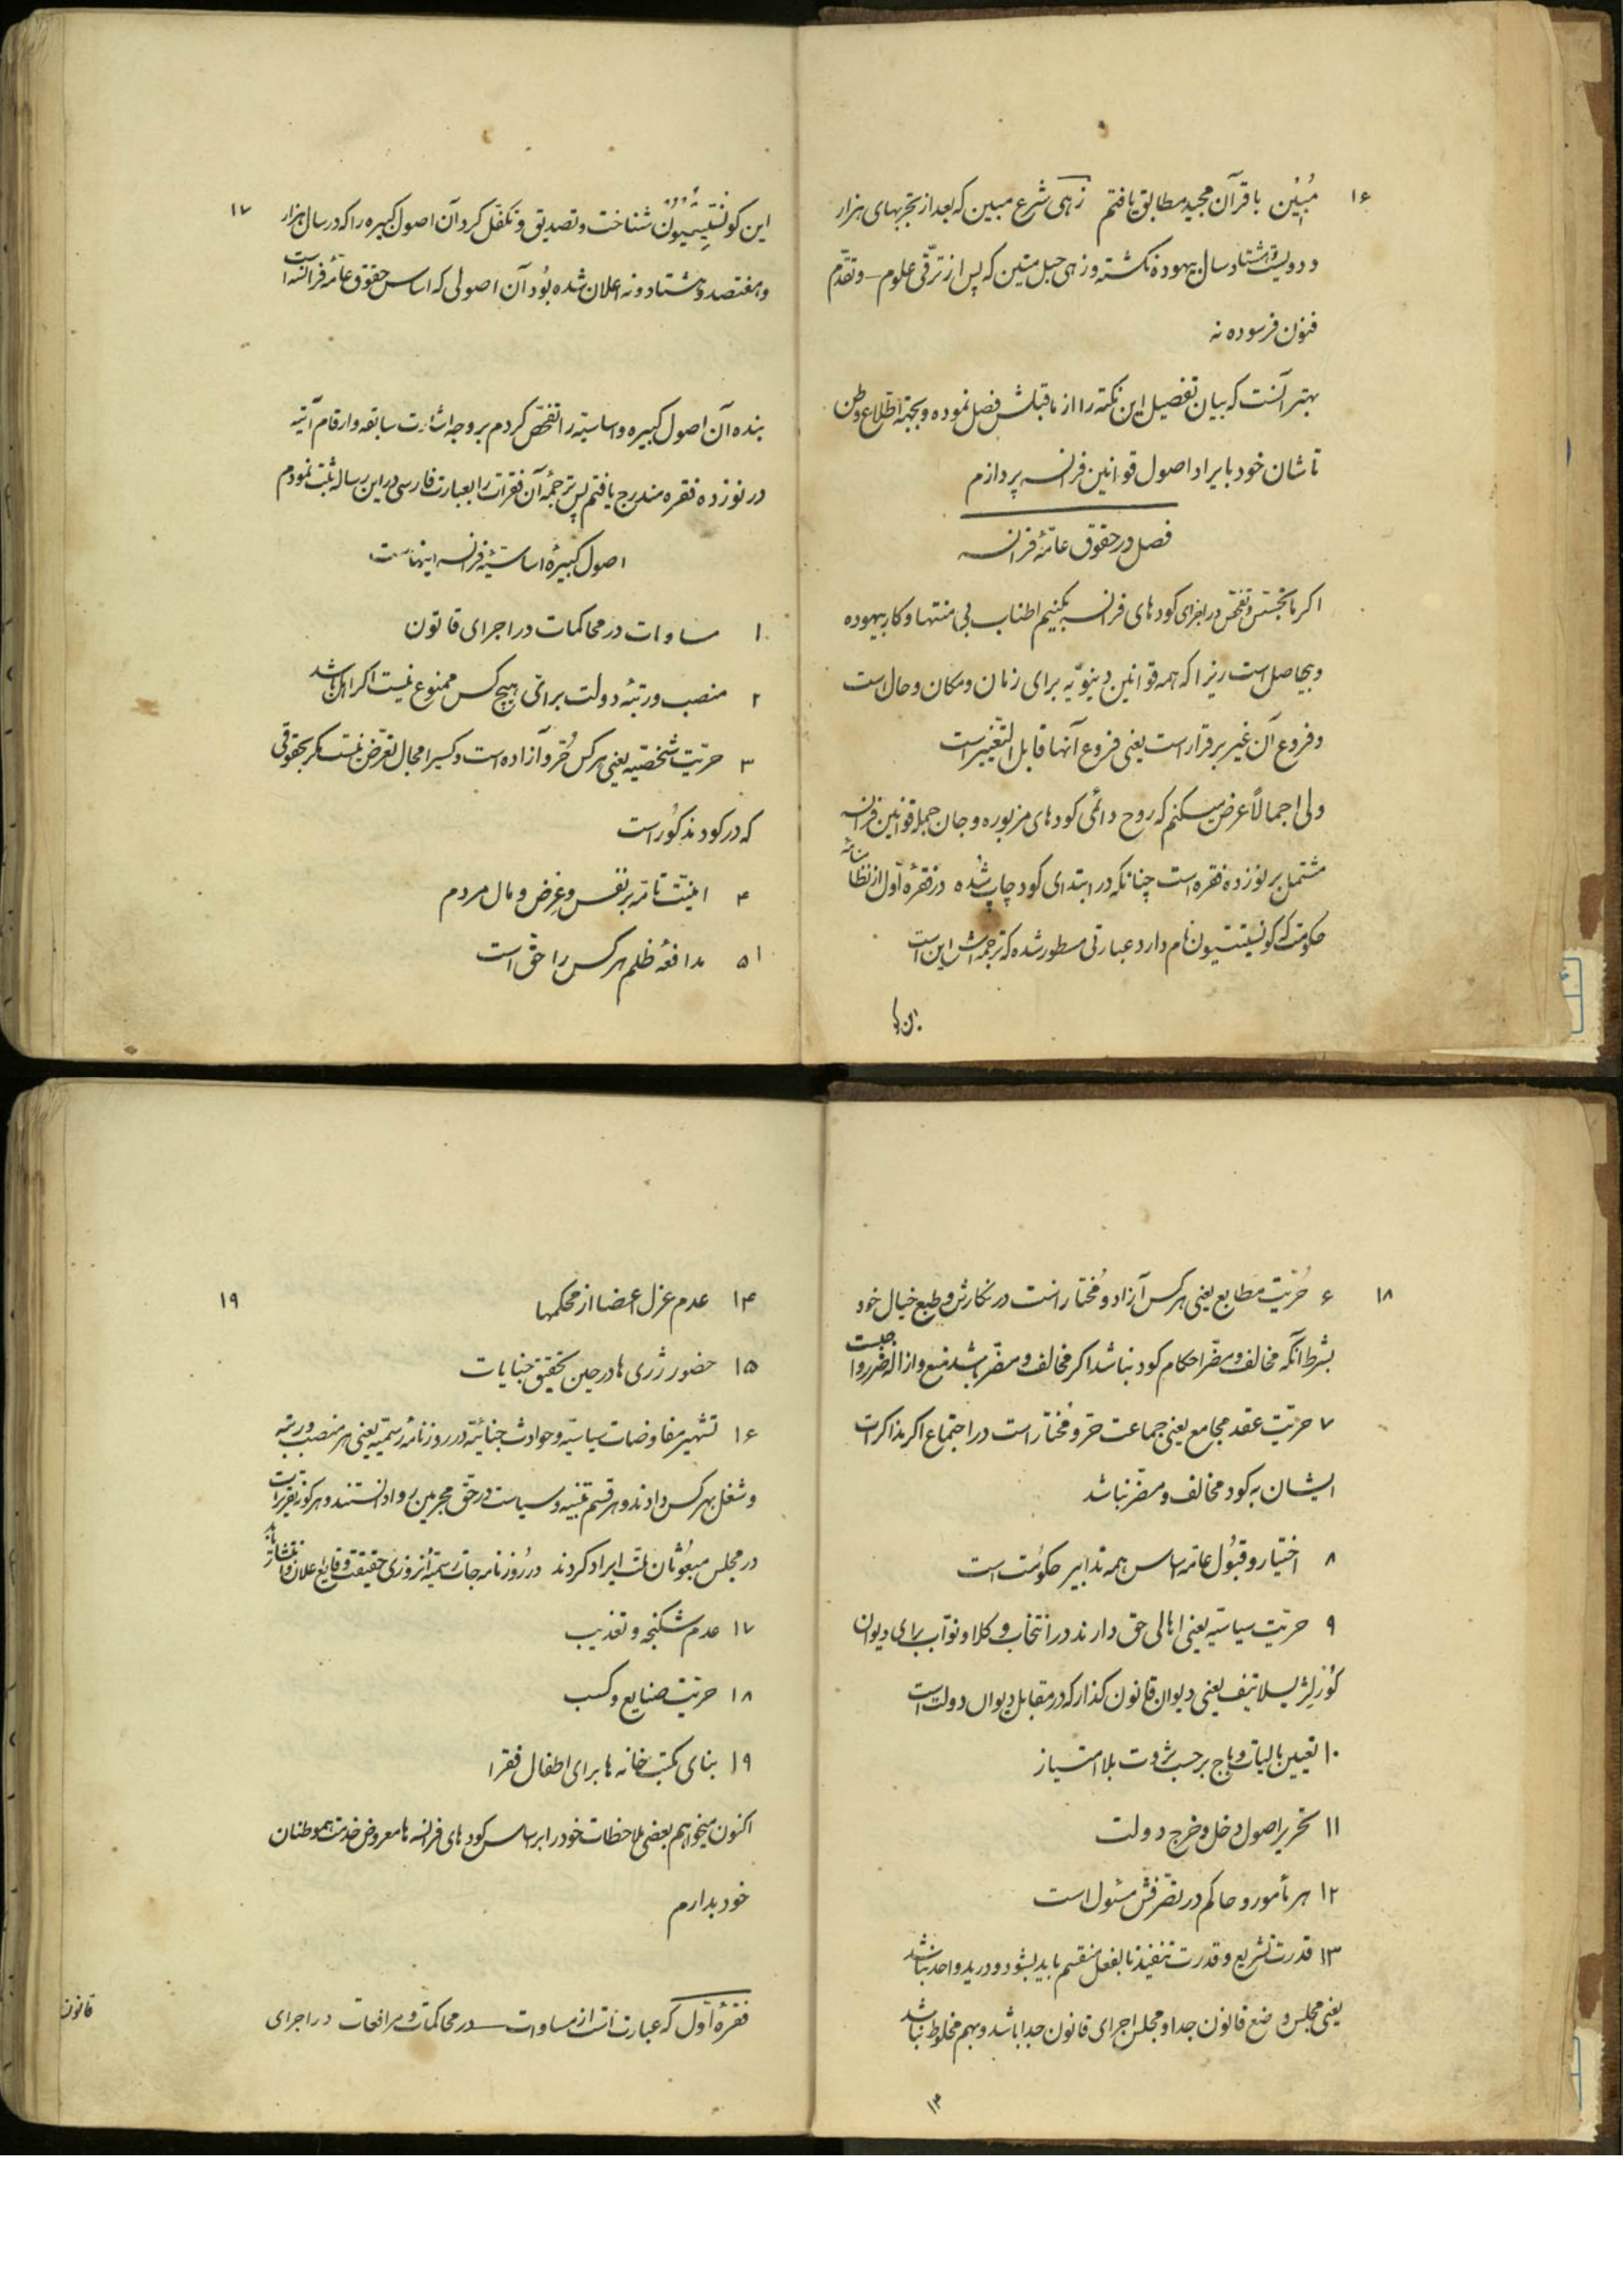 ۱۶
مُبین با قرآن مجید مطابق یافتم زهی شرع مبین که بعد از تجربهای هزار
و دویست و هشتاد سال بیهوده نگشته و زهی حبل متین که پس از ترقّی علوم و تقدّم
فنون فرسوده نه
بهتر آنست که بیان تفصیل این نکته را از ماقبلش فصل نموده و بجهة اطّلاع وطن
تاشان خود بایراد اصول قوانین فرانسه پردازم
فصل در حقوق عامّهٔ فرانسه
اکر ما تجسّس و تفحّص در اجرای کودهای فرانسه بکنیم اطناب بی منتها و کار بیهوده
و بیحاصل است زیرا که همه قوانین دینویّه برای زمان و مکان و حال است
و فروع آن غیر برقرار است یعنی فروع آنها قابل التّغییر است
ولی اجمالاً عرض میکنم که روح دائمی کودهای مزبوره و جان جمله قوانین فرانسه
مشتمل بر نوزده فقره است چنانکه در ابتدای کود چاپ شده در فقرهٔ اوّل از نظامنامهٔ
حکومت که کونستیتسیون نام دارد عبارتی مسطور شده که ترجمه‌اش این است
۱۷
این کونستیتسیون شناخت و تصدیق و تکفّل کرد آن اصول کبیره را که در سال هزار
و هفتصد و هشتاد و نه اعلان شده بود آن اصولی که اساس حقوق عامّهٔ فرانسه است
بنده آن اصول کبیره و اساسیّه را تفحّص کردم بر وجه اشارت سابقه و ارقام آتیه
در نوزده فقره مندرج یافتم پس ترجمهٔ آن فقرات را بعبارت فارسی در این رساله ثبت نمودم
اصول کبیرهٔ اساسیّهٔ فرانسه اینهاست
۱ مساوات در محاکمات در اجرای قانون
۲ منصب و رتبهٔ دولت برای هیچ کس ممنوع نیست اکر اهل باشد
۳ حرّیّت شخصیّه یعنی هر کس حُرّ و آزاده است و کسیرا مجال تعرّض نیست مکر بحقوقی
که در کود مذکور است
۴ امنیّت تامّه بر نفس و عِرض و مال مردم
۵ مدافعهٔ ظلم هر کس را حقّ است
۱۸
۶ حُرّیّت مطابع یعنی هر کس آزاد و مُختار است در نکارش و طبع خیال خود
بشرط آنکه مخالف و مضرّ احکام کود نباشد اکر مخالف و مضرّ باشد منع و ازالهٔ ضرر واجبست
۷ حرّیّت عقد مجامع یعنی جماعت حرّ و مُختار است در اجتماع اکر مذاکرات
ایشان به کود مخالف و مضرّ نباشد
۸ اختیار و قبُول عامّه اساس همه تدابیر حکومت است
۹ حرّیّت سیاسیّه یعنی اهالی حق دارند در انتخاب وکلا و نوّاب برای دیوان
کورلژیسلاتیف یعنی دیوان قانون کذار که در مقابل دیوان دولت است
۱۰ تعیین مالیات و باج برحسب ثروت بلا امتیاز
۱۱ تحریر اصول دخل و خرج دولت
۱۲ هر مأمور و حاکم در تصرّفش مسئول است
۱۳ قدرت تشریع و قدرت تنفیذ بالفعل منقسم باید بشود و در ید واحد نباشد
یعنی مجلس وضع قانون جدا و مجلس اجرای قانون جدا باشد و بهم مخلوط نباشد
۱۹
۱۴ عدم عزل اعضا از محکمها
۱۵ حضور ژری ها در حین تحقیق جنایات
۱۶ تشهیر مفاوضات سیاسیّه و حوادث جنائیّه در روزنامهٔ رسمیّه یعنی هر منصب و رتبه
و شغل بهر کس دادند و هر قسم تنبیه و سیاست در حقّ مجرمین روا دانستند و هر کونه تقریرات
در مجلس مبعوثان ملّت ایراد کردند در روزنامه جات رسمیّه از روی حقیقت وقایع اعلان و انتشار یابد
۱۷ عدم شکنجه و تعذیب
۱۸ حرّیّت صنایع و کسب
۱۹ بنای مکتب خانه ها برای اطفال فقرا
اکنون میخواهم بعضی ملاحظات خود را بر اساس کودهای فرانسه ها معروض خدمت هموطنان
خود بدارم
فقرهٔ اوّل که عبارت است از مساوات در محاکمات و مرافعات در اجرای
قانون